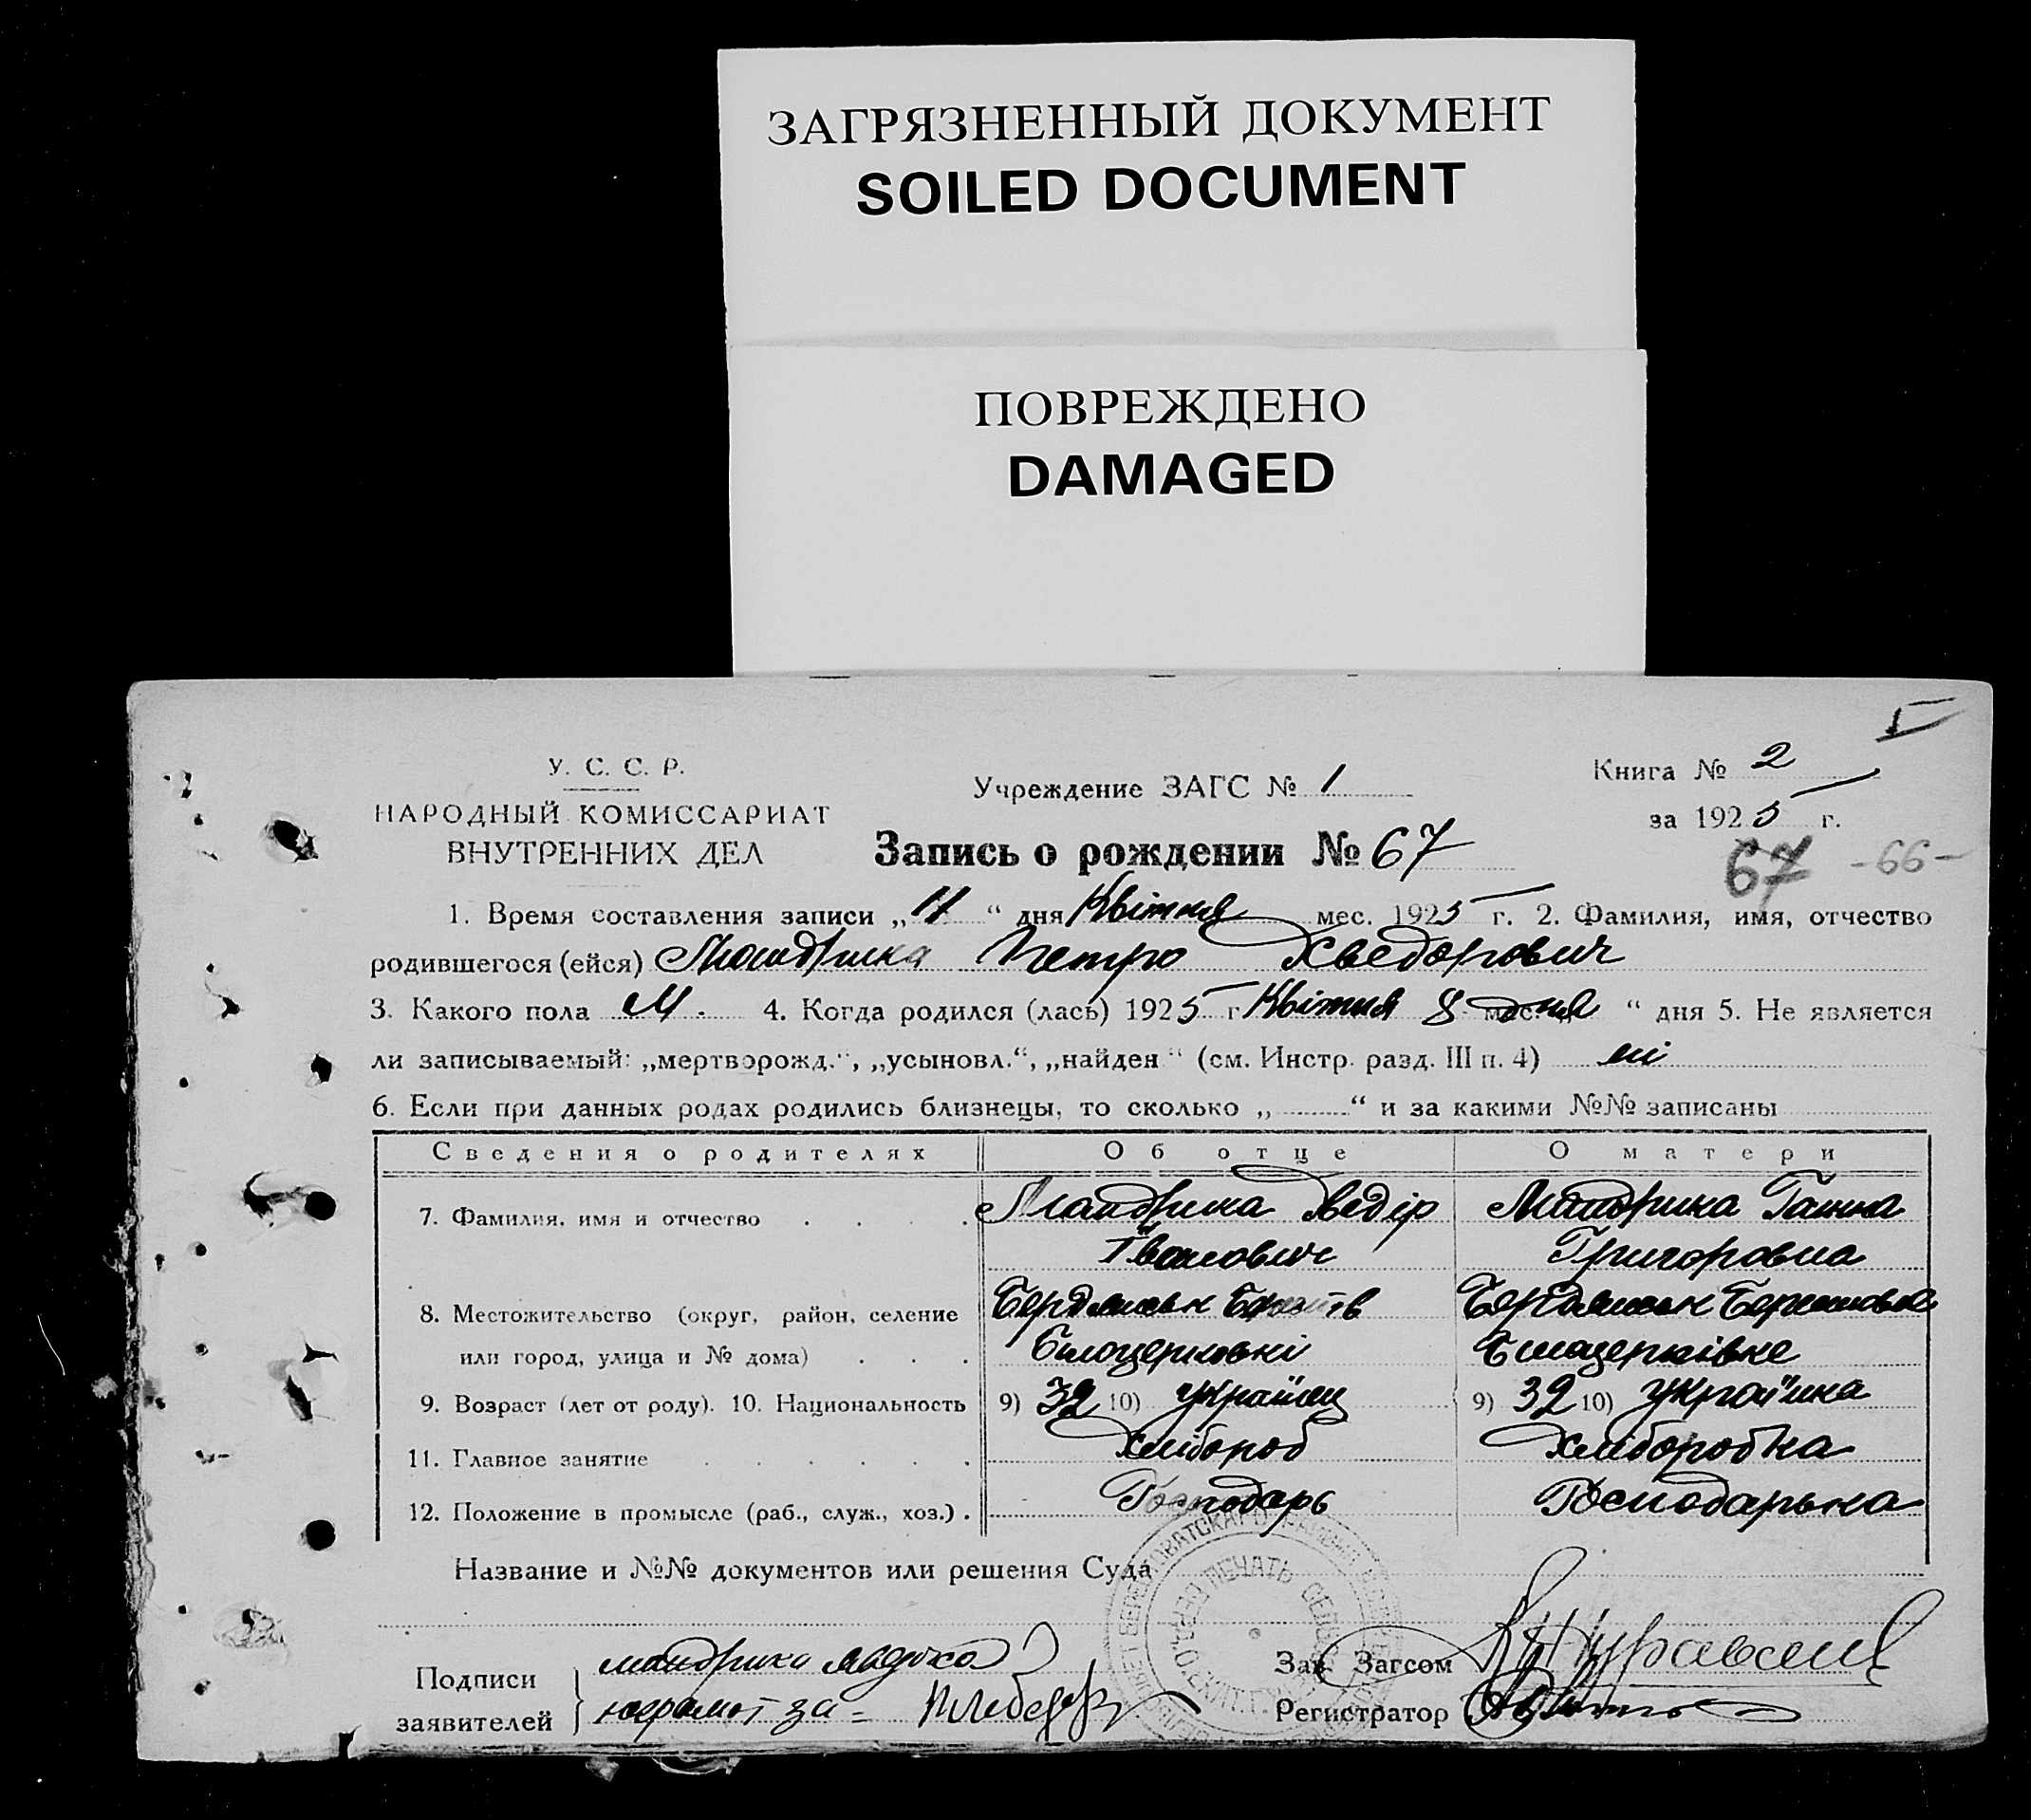 ЗАГРЯЗНЕННЫЙ ДОКУМЕНТ
SOILED DOCUMENT
ПОВРЕЖДЕНО
DAMAGED
У. С. С. Р.
НАРОДНЫЙ КОМИССАРИАТ
ВНУТРЕННИХ ДЕЛ
Учреждение ЗАГС № 1
Книга № 2
за 1925 г.
Запись о рождении № 67
67 -66-
1. Время составления записи „11“ дня Квітня мес. 1925 г. 2. Фамилия, имя, отчество
родившегося (ейся) Мандрика Петро Хведорович
3. Какого пола М. 4. Когда родился (лась) 1925 г Квітня 8 дня “ дня 5. Не является
ли записываемый: „мертворожд.“, „усыновл.“, „найден“ (см. Инстр. разд. III п. 4) ні
6. Если при данных родах родились близнецы, то сколько „ “ и за какими №№ записаны
Сведения о родителях Об отце О матери
7. Фамилия, имя и отчество Мандрика Хведір Мандрика Ганна
Іванович Григоровна
8. Местожительство (округ, район, селение Бердянськ Бердянськ
или город, улица и № дома) Білоцерковкі Білацерківке
9. Возраст (лет от роду). 10. Национальность 9) 32 10) Українец 9) 32 10) Україінка
11. Главное занятие хлібороб хлiборобка
12. Положение в промысле (раб., служ., хоз.) Господарь Господарька
Название и №№ документов или решения Суда
Подписи заявителей мандрика
неграмот за =
Зав. Загсом
Регистратор